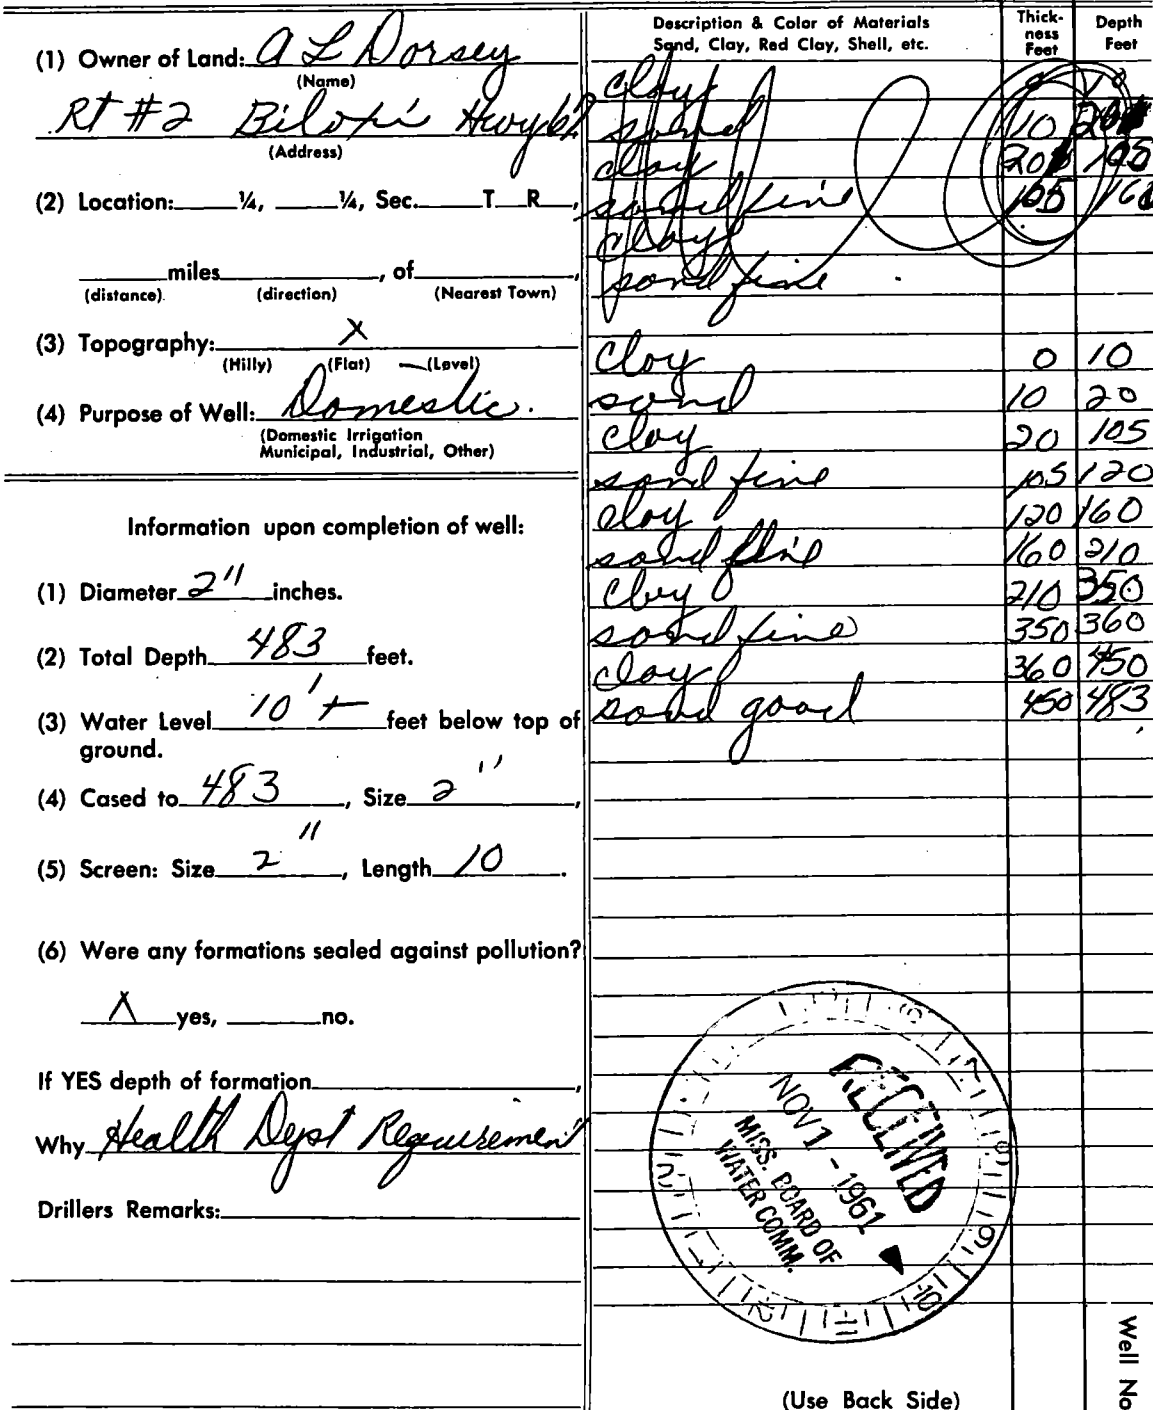 (1) Owner of Land: A L Dorsey
(Name)
Rt #2 Biloxi Hwy 67
(Address)
(2) Location: ¼, ¼, Sec. T R ,
miles , of ,
(distance). (direction) (Nearest Town)
(3) Topography: X
(Hilly) (Flat) (Level)
(4) Purpose of Well: Domestic.
(Domestic Irrigation
Municipal, Industrial, Other)
Information upon completion of well:
(1) Diameter 2" inches.
(2) Total Depth 483 feet.
(3) Water Level 10' + feet below top of
ground.
(4) Cased to 483 , Size 2" ,
(5) Screen: Size 2" , Length 10 .
(6) Were any formations sealed against pollution?
X yes, no.
If YES depth of formation ,
Why Health Dept Requirement
Drillers Remarks:
Description & Color of Materials
Sand, Clay, Red Clay, Shell, etc.
Thick-
ness
Feet
Depth
Feet
clay
sand 10 20
clay 20 105
sand fine 105 160
clay
sand fine
clay 0 10
sand 10 20
clay 20 105
sand fine 105 120
clay 120 160
sand fine 160 210
clay 210 350
sand fine 350 360
clay 360 450
sand good 450 483
RECEIVED
NOV 1 - 1961
MISS. BOARD OF
WATER COMM.
(Use Back Side)
Well No